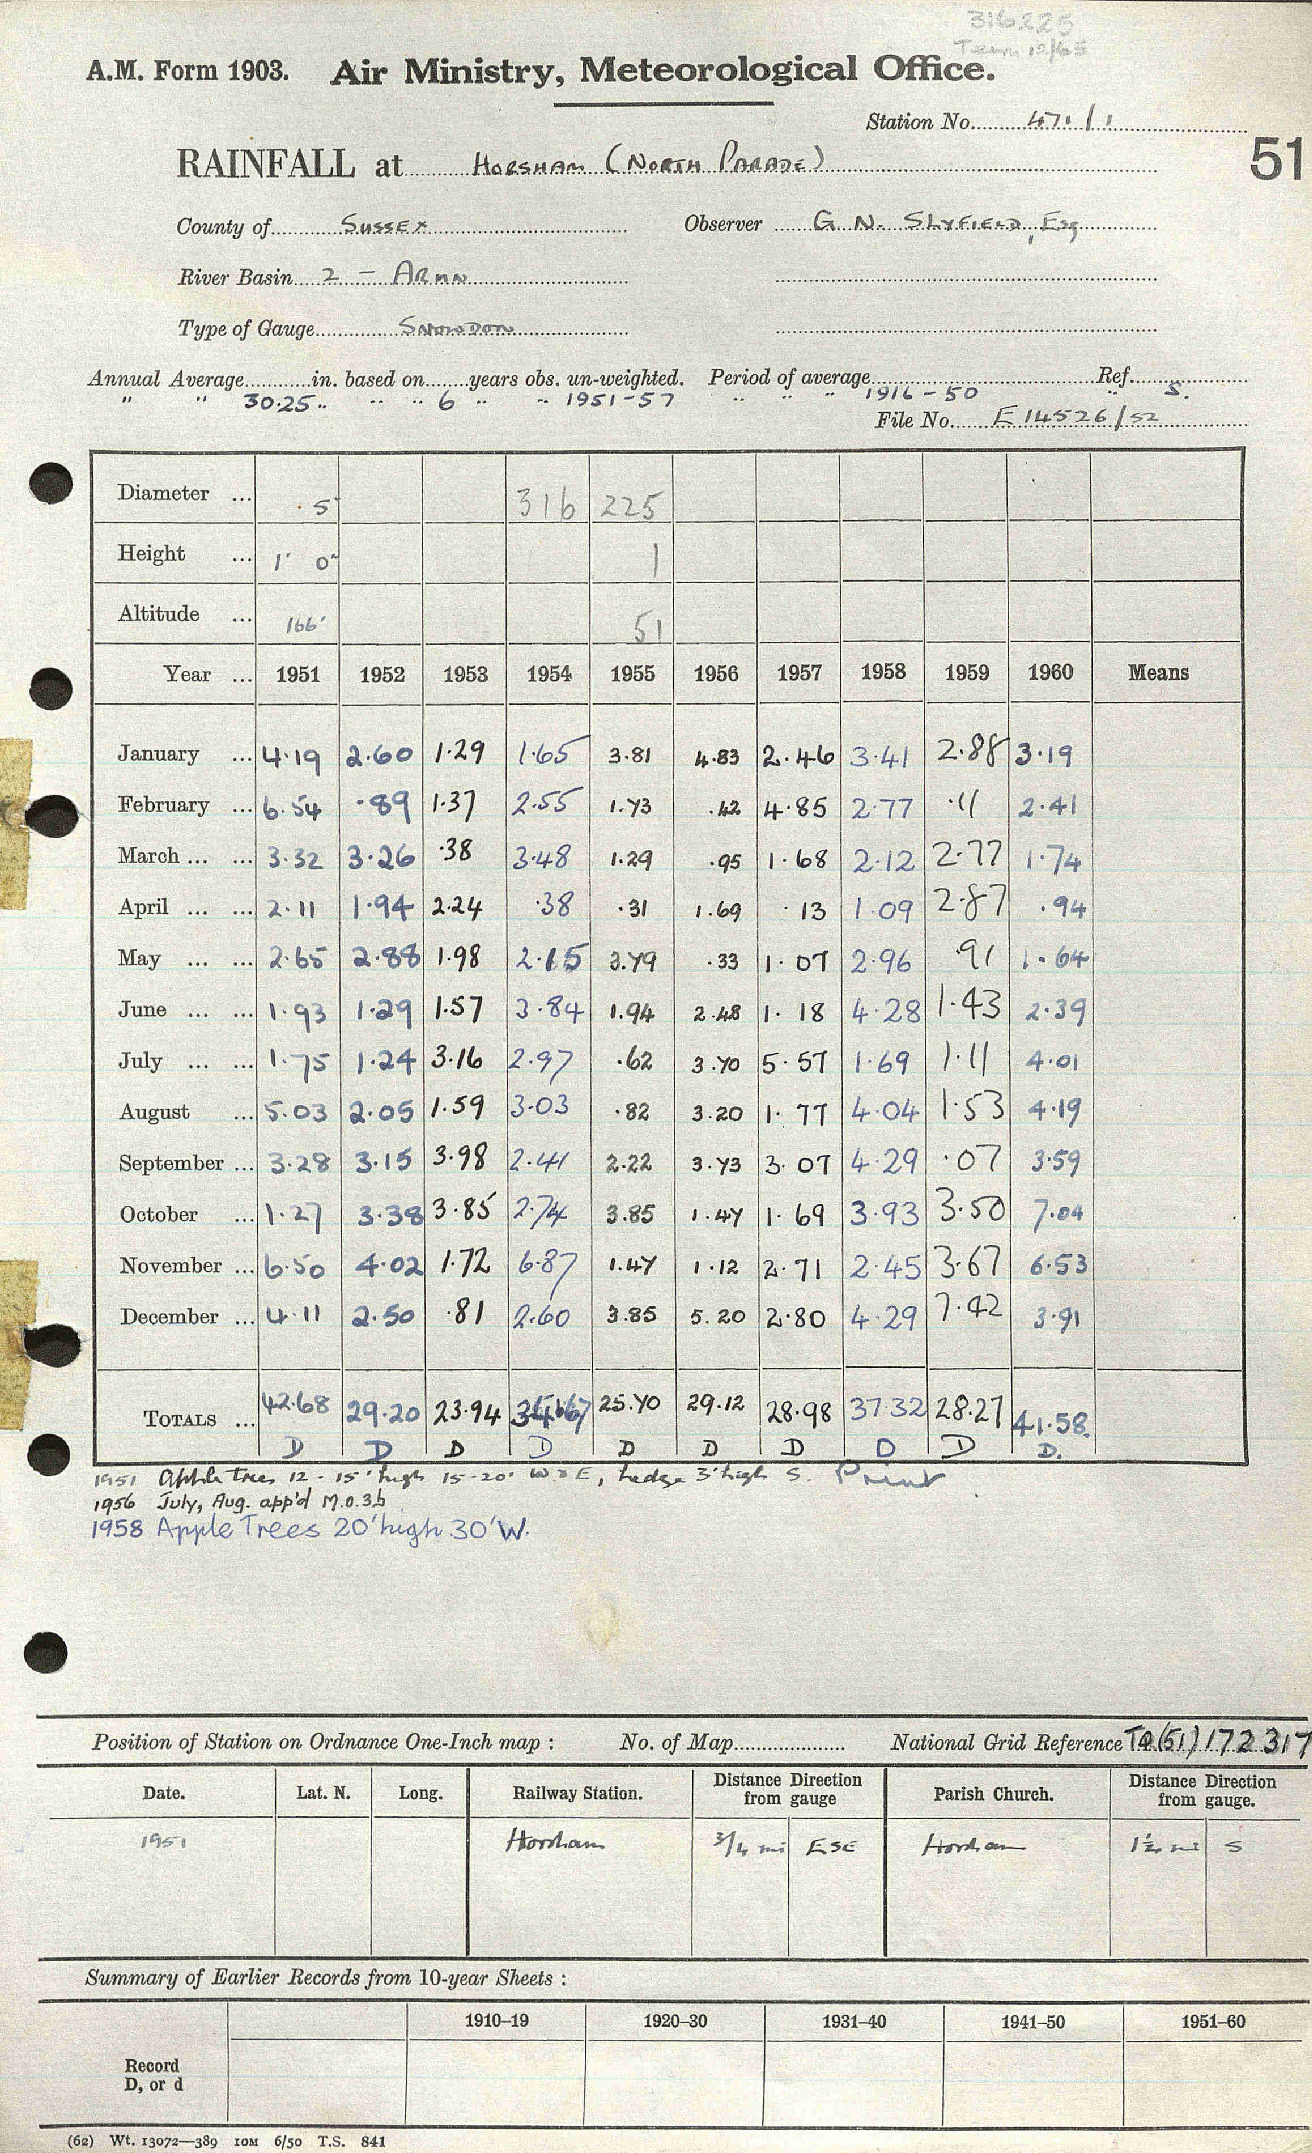 316225
A.M. Form 1903. Air Ministry, Meteorological Office.
Station No. 471/1
51
RAINFALL at HORSHAM (NORTH PARADE)
County of SUSSEX Observer G. N. SLYFIELD, Esq
River Basin 2 - ARUN
Type of Gauge SNOWDON
Annual Average in. based on years obs. un-weighted. Period of average Ref.
" " 30.25 " " " 6 " " 1951-57 " " " 1916-50 " S.
File No. E 14526/52
Diameter ... 5" 316 225
Height ... 1' 0" 1
Altitude ... 166' 51
Year ... 1951 1952 1953 1954 1955 1956 1957 1958 1959 1960 Means
January ... 4.19 2.60 1.29 1.65 3.81 4.83 2.46 3.41 2.88 3.19
February ... 6.54 .89 1.37 2.55 1.73 .42 4.85 2.77 .11 2.41
March ... ... 3.32 3.26 .38 3.48 1.29 .95 1.68 2.12 2.77 1.74
April ... ... 2.11 1.94 2.24 .38 .31 1.69 .13 1.09 2.87 .94
May ... ... 2.65 2.88 1.98 2.15 3.79 .33 1.07 2.96 .91 1.64
June ... ... 1.93 1.29 1.57 3.84 1.94 2.48 1.18 4.28 1.43 2.39
July ... ... 1.75 1.24 3.16 2.97 .62 3.70 5.57 1.69 1.11 4.01
August ... 5.03 2.05 1.59 3.03 .82 3.20 1.77 4.04 1.53 4.19
September ... 3.28 3.15 3.98 2.41 2.22 3.73 3.07 4.29 .07 3.59
October ... 1.27 3.38 3.85 2.74 3.85 1.47 1.69 3.93 3.50 7.04
November ... 6.50 4.02 1.72 6.87 1.47 1.12 2.71 2.45 3.67 6.53
December ... 4.11 2.50 .81 2.60 3.85 5.20 2.80 4.29 7.42 3.91
TOTALS ... 42.68 29.20 23.94 34.67 25.70 29.12 28.98 37.32 28.27 41.58
D D D D D D D D D D.
1951 Apple trees 12-15' high 15-20' W & E, hedge 3' high S. Print
1956 July, Aug. app'd M.O.3b
1958 Apple Trees 20' high 30' W.
Position of Station on Ordnance One-Inch map : No. of Map National Grid Reference TQ(51)172317
Date. Lat. N. Long. Railway Station. Distance Direction from gauge Parish Church. Distance Direction from gauge.
1951 Horsham 3/4 mi ESE Horsham 1 1/2 mi S
Summary of Earlier Records from 10-year Sheets :
1910-19 1920-30 1931-40 1941-50 1951-60
Record
D, or d
(62) Wt. 13072—389 10M 6/50 T.S. 841